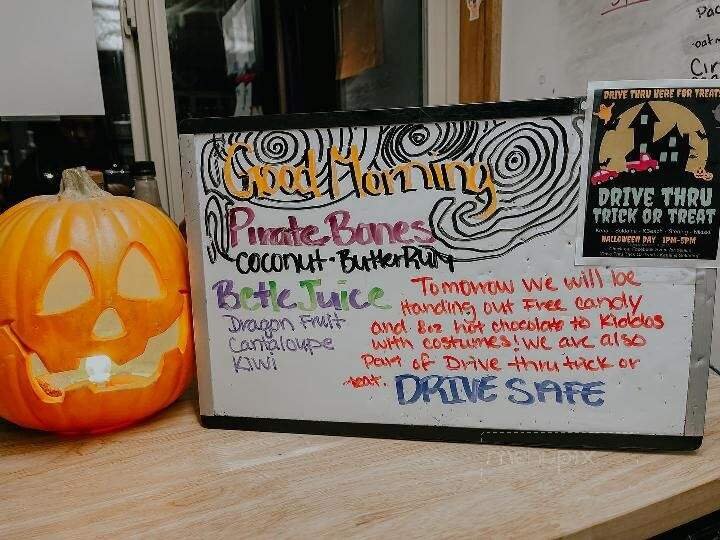 Good Morning
Pirate Bones
Coconut-Butter Rum
Betle Juice
Dragon Fruit
Cantaloupe
Kiwi
Tomorrow we will be
Handing out Free candy
and 8oz hot chocolate to Kiddos
with costumes! We are also
Part of Drive-thru trick or
treat.
DRIVE SAFE
DRIVE THRU HERE FOR TREATS
DRIVE THRU
TRICK OR TREAT
HALLOWEEN DAY 1PM-5PM